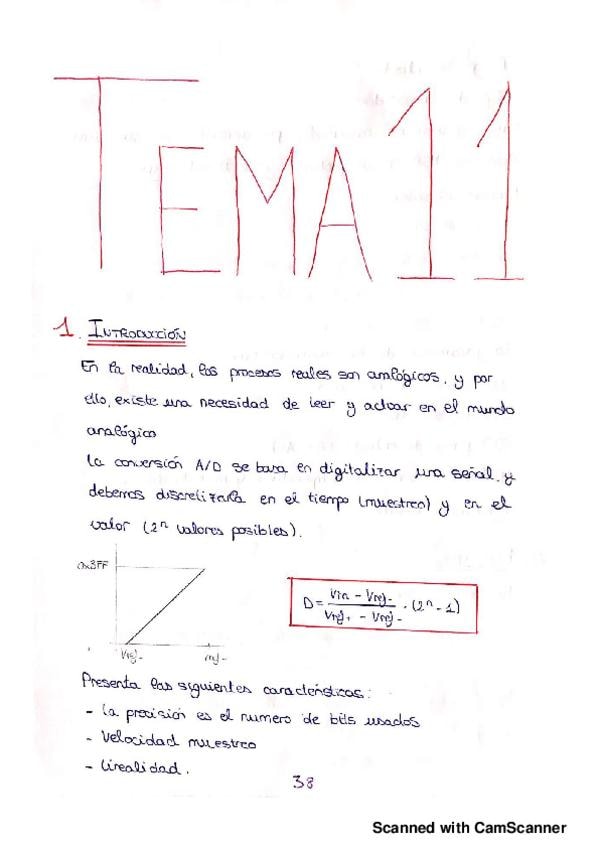 TEMA 11
1. INTRODUCCIÓN
En la realidad, los procesos reales son analógicos, y por
ello, existe una necesidad de leer y actuar en el mundo
analógico
La conversión A/D se basa en digitalizar una señal, y
debemos discretizarla en el tiempo (muestreo) y en el
valor (2ⁿ valores posibles).
0x3FF
D = (Vin - Vref-) / (Vref+ - Vref-) · (2ⁿ - 1)
Vref-
Presenta las siguientes características:
- La precisión es el numero de bits usados
- Velocidad muestreo
- Linealidad.
38
Scanned with CamScanner